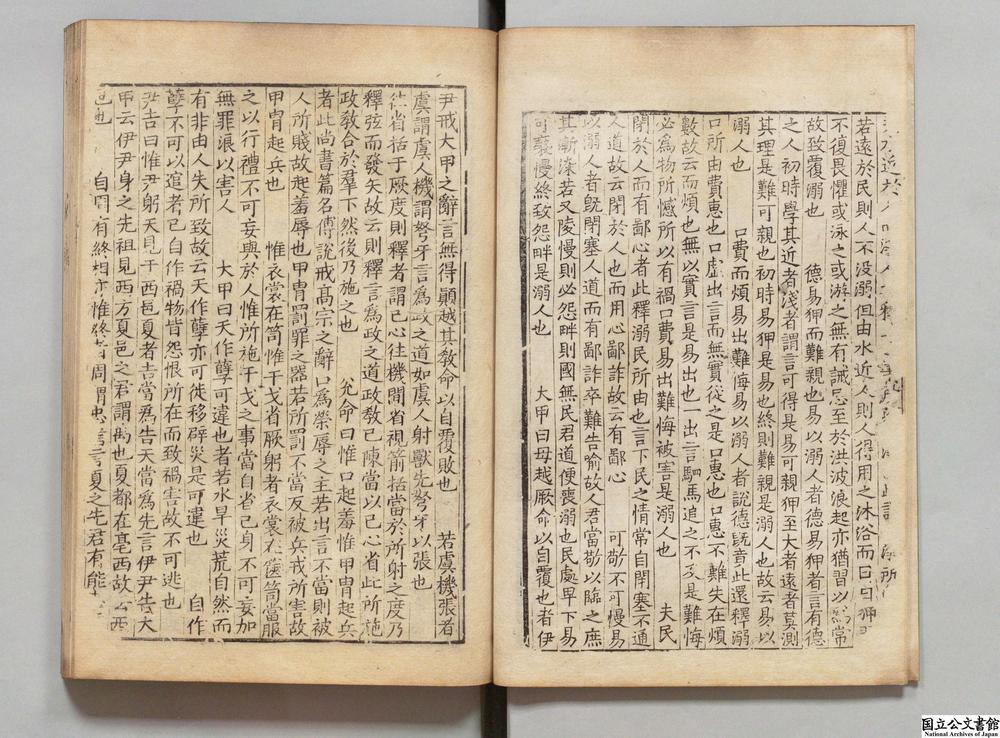 近於人
若遠於民則人不没溺但由水近人則人得用之沐浴而日日狎
不復畏懼或泳之或游之無有誡忌至於洪波浪起亦猶習以爲常
故致覆溺也　德易狎而難親也易以溺人者德易狎者言有德
之人初時學其近者淺者謂言可得是易可親狎至大者遠者莫測
其理是難可親也初時易狎是易也終則難親是溺人也故云易以
溺人也　口費而煩易出難悔易以溺人者說德既竟此還釋溺
口所由費惠也口虛出言而無實從之是口惠也口惠不難失在煩
數故云而煩也無以實言是易出也一出言駟馬追之不及是難悔
必爲物所憾所以有禍口費易出難悔被害是溺人也　夫民
閉於人而有鄙心者此釋溺民所由也言下民之情常自閉塞不通
人道故云閉於人也而用心鄙詐故云有鄙心　可敬不可慢易
以溺人者既閉塞人道而有鄙詐卒難告喻故人君當敬以臨之庶
其漸染若又陵慢則必怨畔則國無民君道便喪溺也民處卑下易
可褻慢終致怨畔是溺人也　大甲曰毋越厥命以自覆也者伊
尹戒大甲之辭言無得顚越其敎命以自覆敗也　若虞機張者
虞謂虞人機謂弩牙言爲政之道如虞人射獸先弩牙以張也
往省括于厥度則釋者謂已心往機間省視箭括當於所射之度乃
釋弦而發矢故云則釋言爲政之道政敎已陳當以己心省此所施
政敎合於羣下然後乃施之也　允命曰惟口起羞惟甲冑起兵
者此尚書篇名傅說戒高宗之辭口爲榮辱之主若出言不當則被
人所賤故起羞辱也甲冑罰罪之器若所罰不當反被兵戒所害故
甲冑起兵也　惟衣裳在笥惟干戈省厥躬者衣裳在篋笥當服
之以行禮不可妄與於人惟所施干戈之事當自省己身不可妄加
無罪浪以害人　大甲曰天作孽可違也者若水旱災荒自然而
有非由人失所致故云天作孽亦可徙移辟災是可違也　自作
孽不可以逭者己自作禍物皆怨恨所在而致禍害故不可逃也
尹吉曰惟尹躬天見于西邑夏者吉當爲告天當爲先言伊尹告大
甲云伊尹身之先祖見西方夏邑之君謂禹也夏都在亳西故云西
邑也　自周有終相亦惟終者周謂忠信言夏之先君有能
国立公文書館
National Archives of Japan